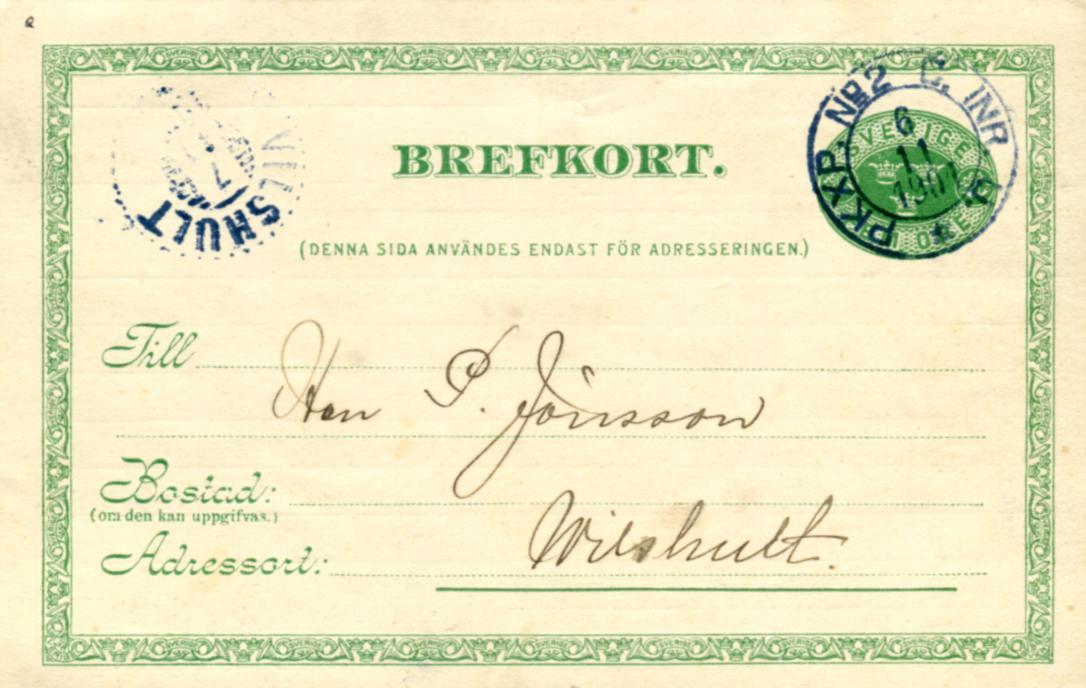 PKXP No 2 C. INR
6
11
SVERIGE
BREFKORT.
VILSHULT
7
(DENNA SIDA ANVÄNDES ENDAST FÖR ADRESSERINGEN.)
Till
Herr P. Jönsson
Bostad:
(om den kan uppgifvas.)
Adressort:
Wilshult.